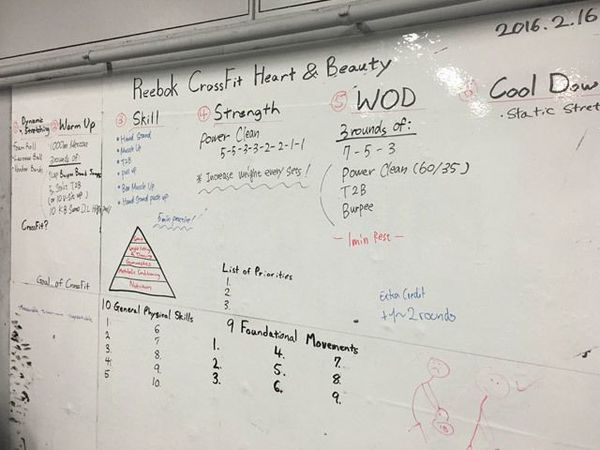 2016.2.16
Reebok CrossFit Heart & Beauty
① Dynamic Stretching
Foam Roll
Lacrosse Ball
② Warm Up
1000m
3 rounds of:
③ Skill
• Hand Stand
• Muscle Up
• T2B
• pull up
• Bar Muscle Up
• Hand Stand push up
5min practice!
④ Strength
Power Clean
5-5-3-3-2-2-1-1
* Increase weight every sets!
⑤ WOD
3 rounds of:
7-5-3
Power Clean (60/35)
T2B
Burpee
— 1min Rest —
Extra Credit
2 rounds
Cool Dow
• Static Stret
CrossFit?
Goal of CrossFit
Sport
Weightlifting & Throwing
Gymnastics
Metabolic Conditioning
Nutrition
List of Priorities
1.
2.
3.
10 General Physical Skills
1 6
2 7
3 8.
4. 9.
5. 10.
9 Foundational Movements
1. 4. 7.
2. 5. 8.
3. 6. 9.